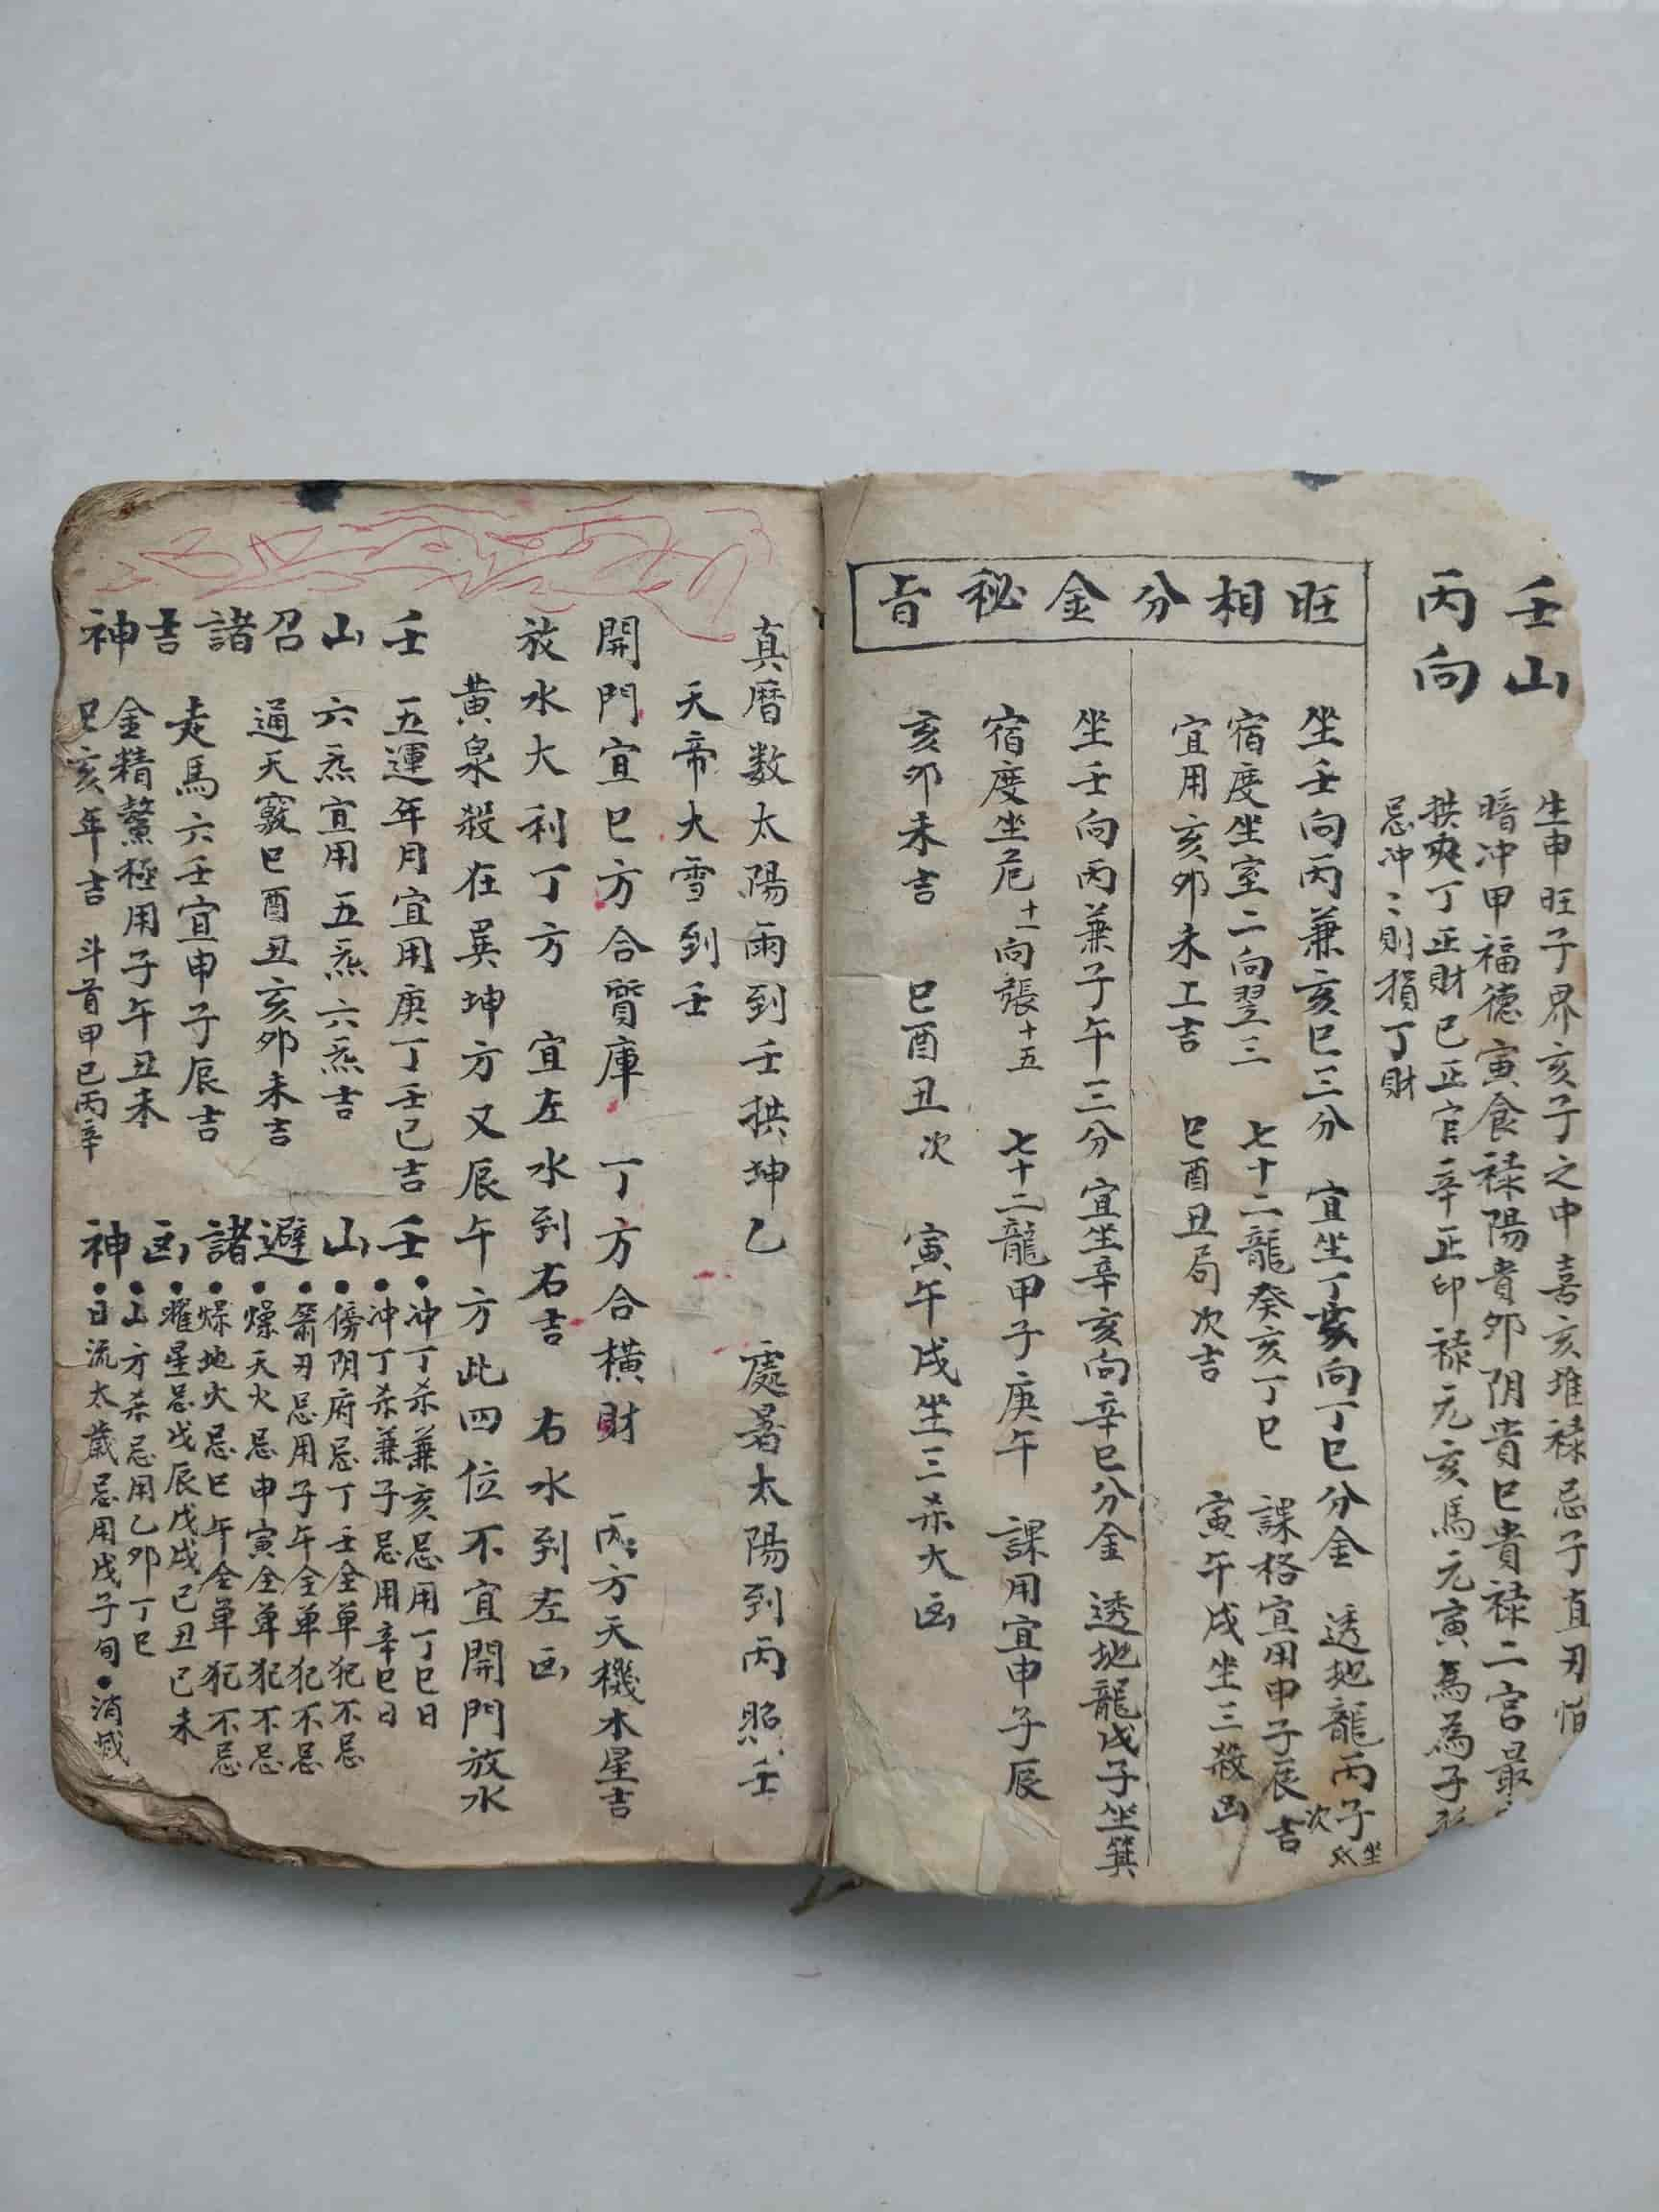 壬山
丙向
生申旺子界亥子之中喜亥堆祿忌子直刃怕
暗冲甲福德寅食祿陽貴卯阴貴巳貴祿二宫最
拱夾丁正財己正官辛正印祿元亥馬元寅為為子
忌冲〻則損丁財
旺相分金秘旨
坐壬向丙兼亥巳三分 宜坐丁亥向丁巳分金 透地龍丙子坐
宿度坐室二向翌三 七十二龍癸亥丁巳 課格宜用申子辰吉次
宜用亥卯未上吉 巳酉丑局次吉 寅午戌坐三殺凶
坐壬向丙兼子午三分 宜坐辛亥向辛巳分金 透地龍戊子坐箕
宿度坐危十一向張十五 七十二龍甲子庚午 課用宜申子辰
亥卯未吉 巳酉丑次 寅午戌坐三杀大凶
真曆数太陽雨到壬拱坤乙 處暑太陽到丙照壬
天帝大雪到壬
開門宜巳方合賢庫 丁方合橫財 丙方天機木星吉
放水大利丁方 宜左水到右吉 右水到左凶
黄泉殺在巽坤方又辰午方此四位不宜開門放水
壬山召諸吉神
五運年月宜用庚丁壬己吉
六炁宜用五炁六炁吉
通天竅巳酉丑亥卯未吉
走馬六壬宜申子辰吉
金精鰲極用子午丑未
巳亥年吉 斗首甲己丙辛
壬山避諸凶神
•冲丁杀兼亥忌用丁巳日
•冲丁杀兼子忌用辛巳日
•傍阴府忌丁壬全单犯不忌
•箭刃忌用子午全单犯不忌
•燥天火忌申寅全单犯不忌
•燥地火忌巳午全单犯不忌
•耀星忌戊辰戊戌己丑己未
•山方杀忌用乙卯丁巳
•日流太歲忌用戊子旬•消滅